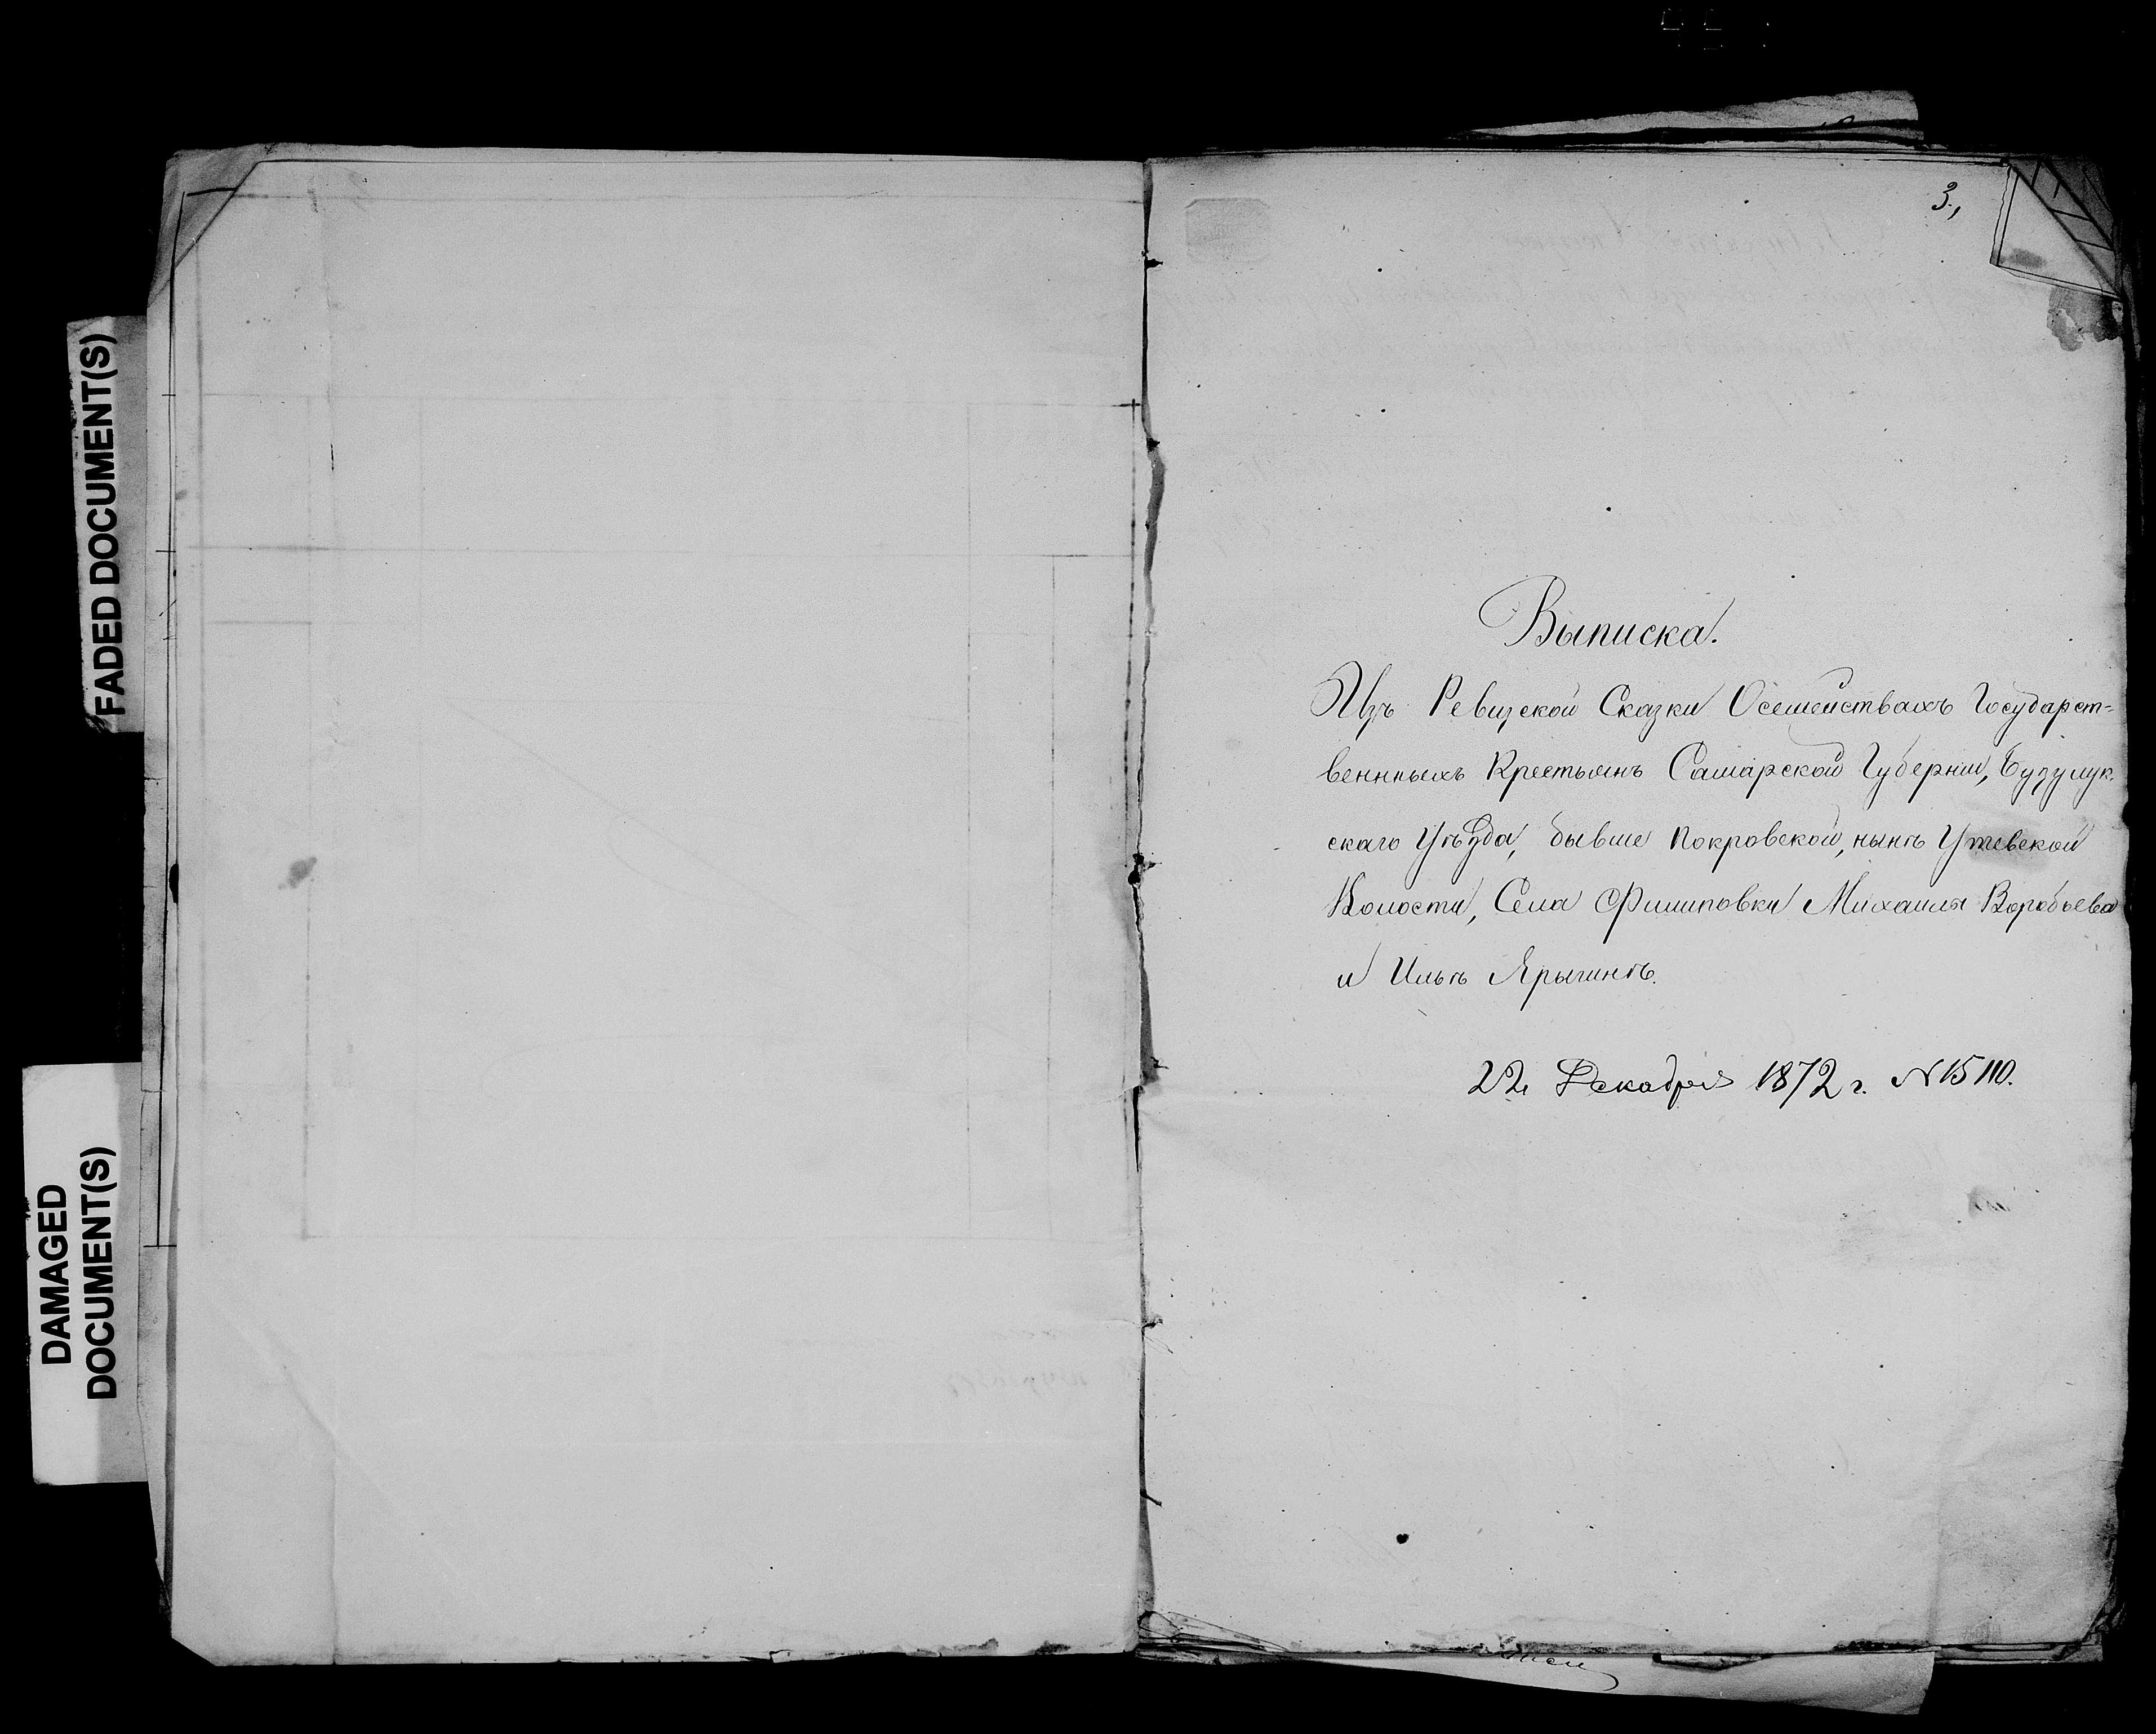 FADED DOCUMENT(S)
DAMAGED
DOCUMENT(S)
3,
Выписка.
Изъ Ревизской Сказки Осемействахъ Государст-
венныхъ Крестьянъ Самарской Губернии, Бузулук-
скаго Уѣзда, бывше Покровской, нынѣ Утевской
Волости, Села Филиповки Михаила Воробьева
и Ильѣ Ярыгинѣ.
22 Декабря 1872 г. N 15110.